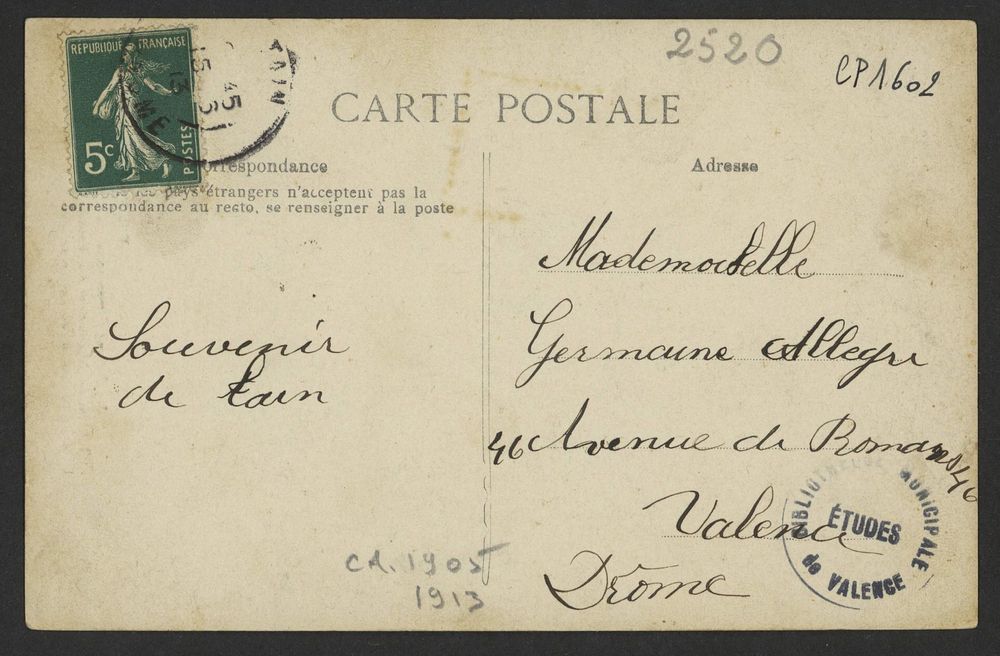 2520
CP1602
REPUBLIQUE FRANÇAISE
5c
POSTES
TAIN
CARTE POSTALE
Correspondance
pays étrangers n'acceptent pas la
correspondance au recto, se renseigner à la poste
Adresse
Souvenir
de tain
Mademoiselle
Germaine Allegre
46 Avenue de Romans 46
Valence
Drôme
BIBLIOTHEQUE MUNICIPALE
ÉTUDES
de VALENCE
CA. 1905
1913